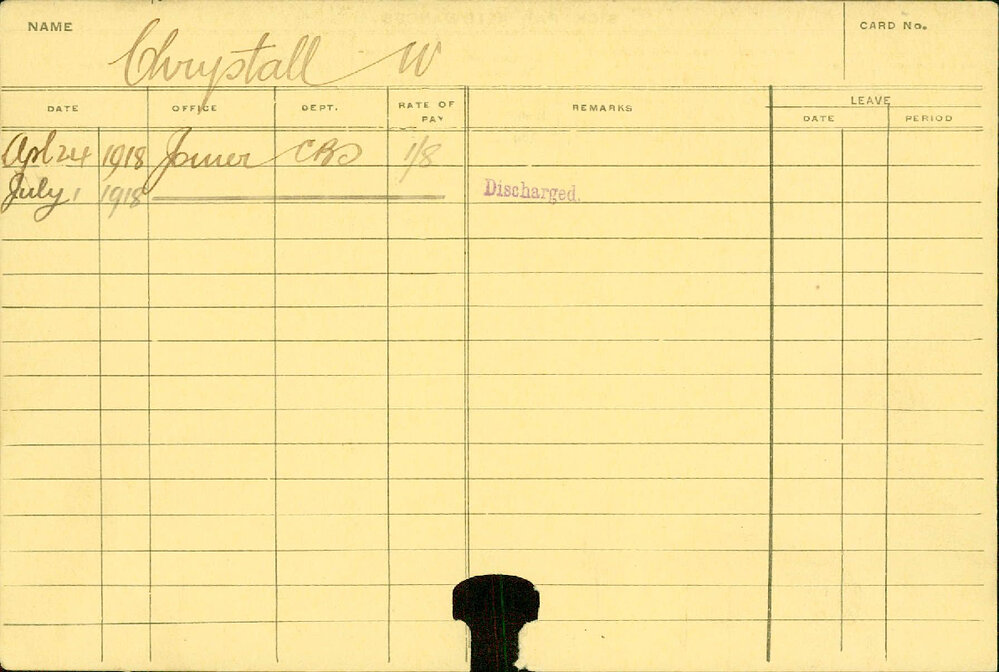 NAME Chrystall W CARD No.
DATE OFFICE DEPT. RATE OF PAY REMARKS LEAVE
DATE PERIOD
Apl 24 1918 Joiner CBD 1/8
July 1 1918 Discharged.